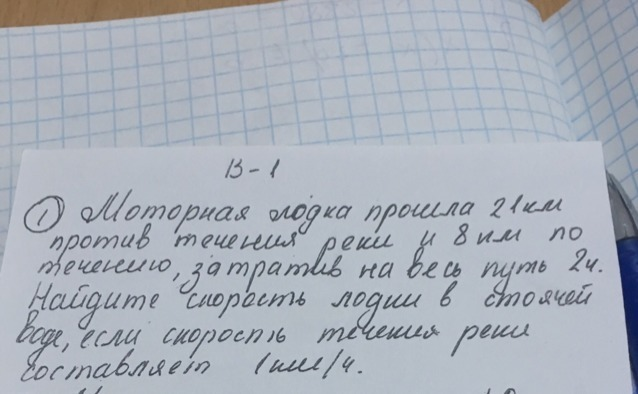 В-1
① Моторная лодка прошла 21 км
против течения реки и 8 км по
течению, затратив на весь путь 2ч.
Найдите скорость лодки в стоячей
воде, если скорость течения реки
составляет 1 км/ч.